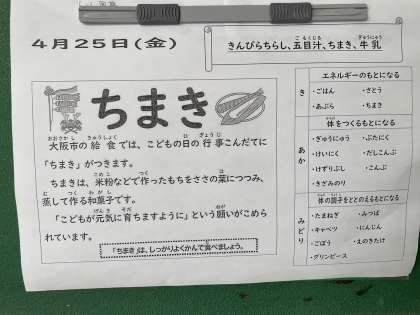 4月25日(金)
きんぴらちらし、五目汁、ちまき、牛乳
ちまき
大阪市の給食では、こどもの日の行事こんだてに
「ちまき」がつきます。
ちまきは、米粉などで作ったもちをささの葉につつみ、
蒸して作る和菓子です。
「こどもが元気に育ちますように」という願いがこめら
れています。
「ちまき」は、しっかりよくかんで食べましょう。
き
エネルギーのもとになる
・ごはん ・さとう
・あぶら ・ちまき
あか
体をつくるもとになる
・ぎゅうにゅう ・ぶたにく
・けいにく ・だしこんぶ
・けずりぶし ・こんぶ
・きざみのり
みどり
体の調子をととのえるもとになる
・たまねぎ ・みつば
・キャベツ ・にんじん
・ごぼう ・えのきたけ
・グリンピース